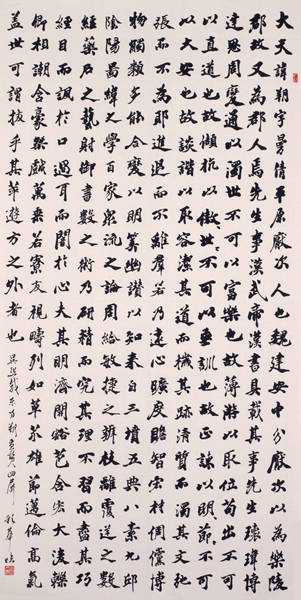 大夫諱朔字曼平原厭次人也魏建安中分厭次以為樂陵
郡故又為郡人焉先生事漢武帝漢書具載其事先生瓌瑋博
達思周變通以濁世不可以富樂也故薄游以取位苟出不可
以直道也故傾抗以傲世世不可以垂訓也故正諫以明節不可
以久安也故談諧以取容潔其道而穢其跡清其質而濁其文弛
張而不為耶進退而不離羣若乃遠心曠度瞻智宏材倜儻博
物觸類多能合變以明筭幽讚以知來自三墳五典八索九丘
陰陽圖緯之學百家眾流之論周給敏捷之辨枝離覆逆之數
經藥石之藝射御書數之術乃研精而究其理不習而盡其巧
經目而諷於口過耳而闇於心夫其明濟開豁苞含宏大淩轢
卿相謿含豪桀戲萬乘若寮友視疇列如草芥雄節邁倫高氣
蓋世可謂拔乎其萃遊方之外者也